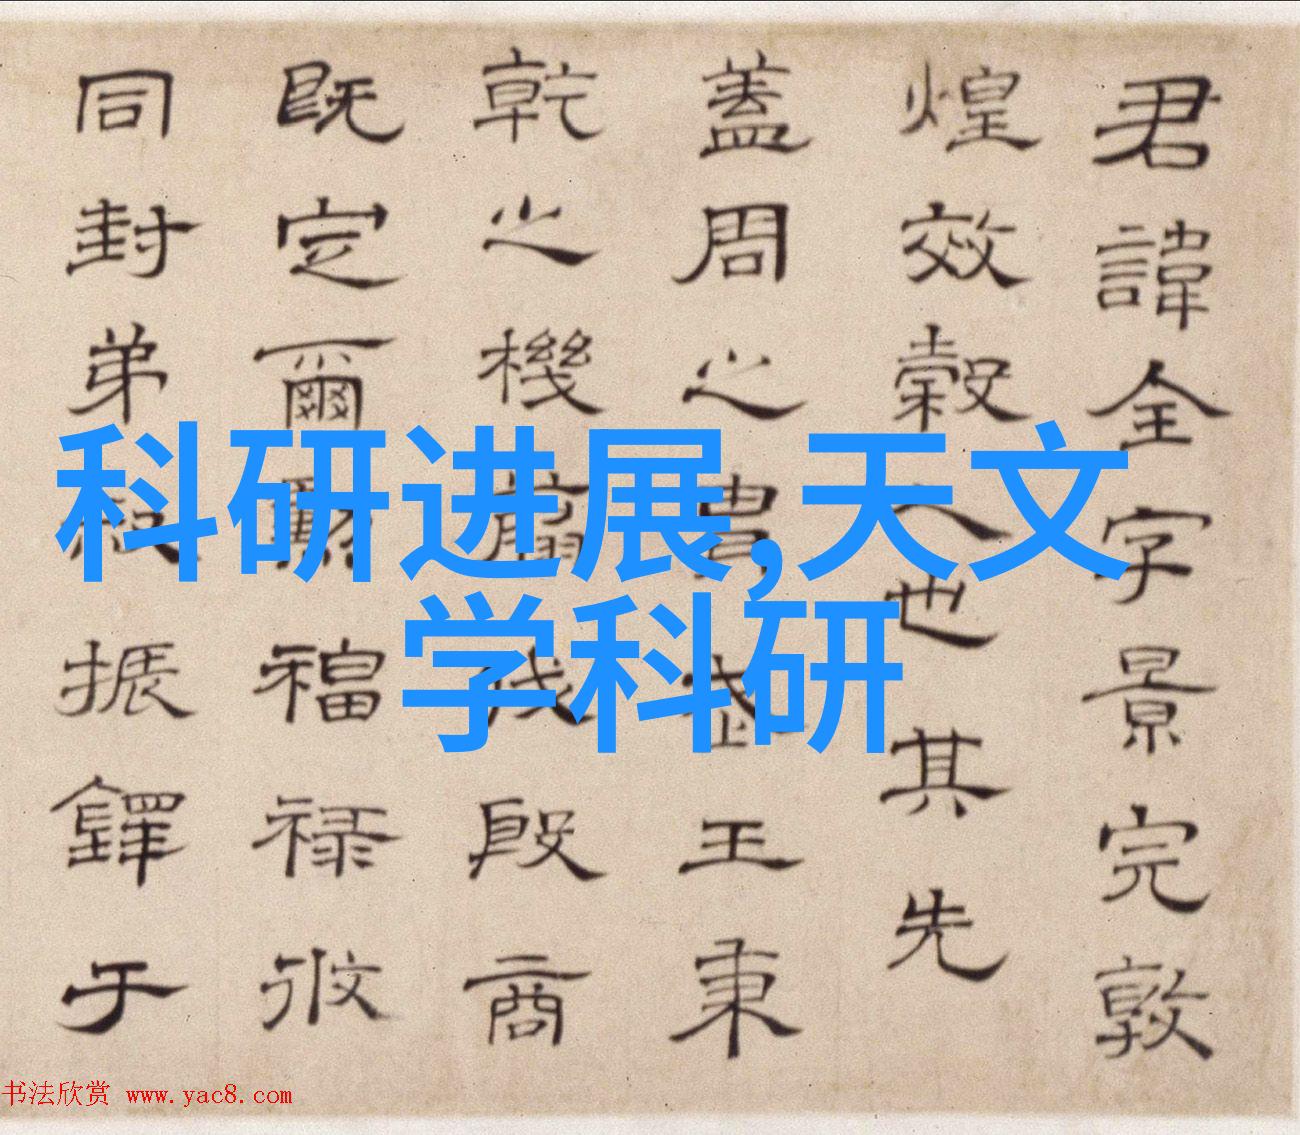 君諱全字景完敦
煌效穀人也其先
蓋周之胄武王秉
乾之機翦伐殷商
既定爾勳福禄攸
同封弟叔振鐸于
科研进展,天文
学科研
书法欣赏 www.yac8.com